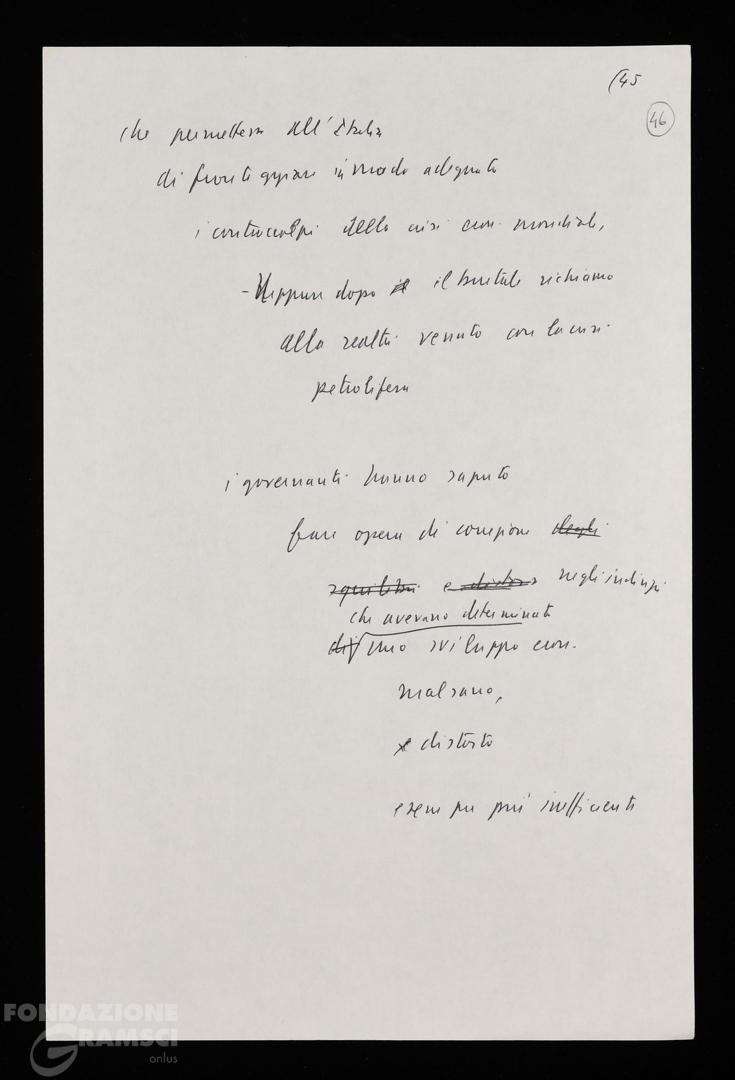 (45
46
che permettesse all'Italia
di fronteggiare in modo adeguato
i contraccolpi della crisi econ. mondiale,
- Neppure dopo il il brutale richiamo
alla realtà venuto con la crisi
petrolifera
i governanti hanno saputo
fare opera di correzione degli
squilibri e negli indirizzi
che avevano determinato
di uno sviluppo econ.
malsano,
e distorto
e sempre più inefficiente
FONDAZIONE
GRAMSCI
onlus